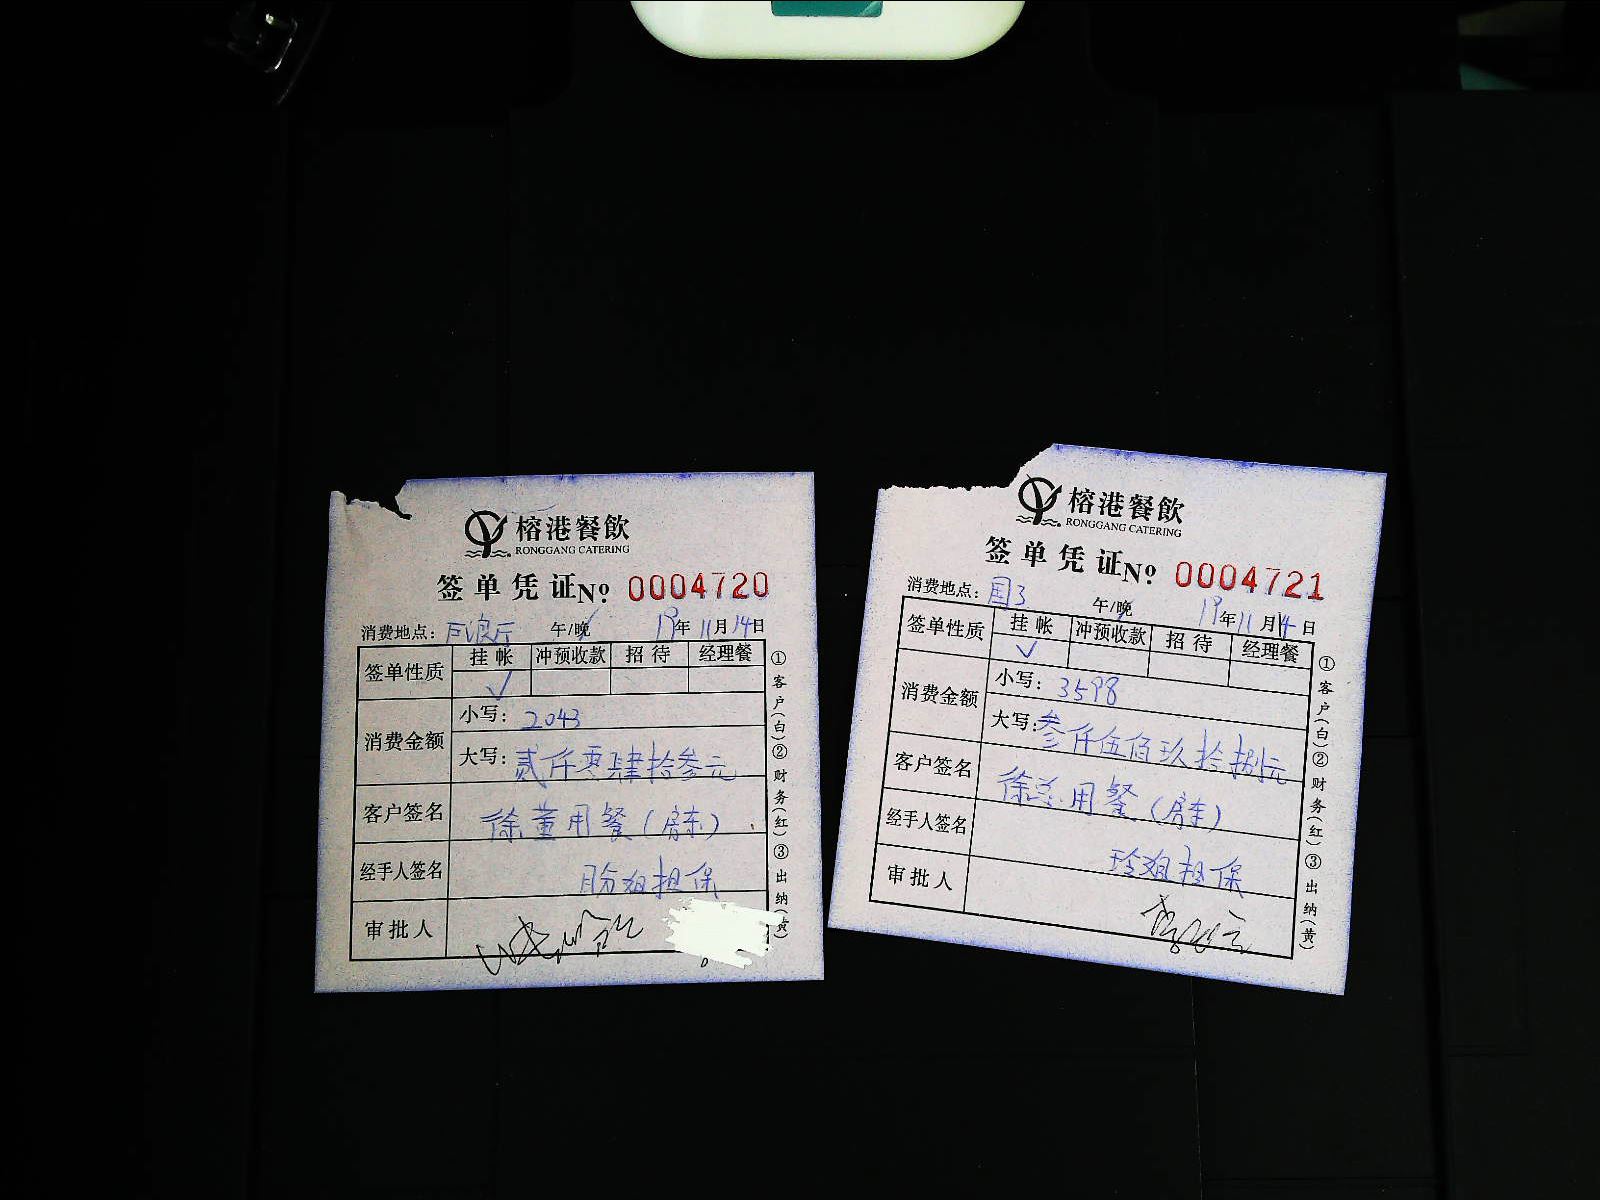 榕港餐飲
RONGGANG CATERING
签单凭证No. 0004720
消费地点： 午/晚 19年11月14日
签单性质 挂帐 冲预收款 招待 经理餐
√
消费金额 小写：2043
大写：贰仟零肆拾叁元
客户签名 徐董用餐（房东）
经手人签名 姐担保
审批人
①客户(白)②财务(红)③出纳(黄)
榕港餐飲
RONGGANG CATERING
签单凭证No. 0004721
消费地点：国3 午/晚 19年11月14日
签单性质 挂帐 冲预收款 招待 经理餐
√
消费金额 小写：3598
大写：叁仟伍佰玖拾捌元
客户签名 徐总用餐（房东）
经手人签名 玲姐担保
审批人
①客户(白)②财务(红)③出纳(黄)